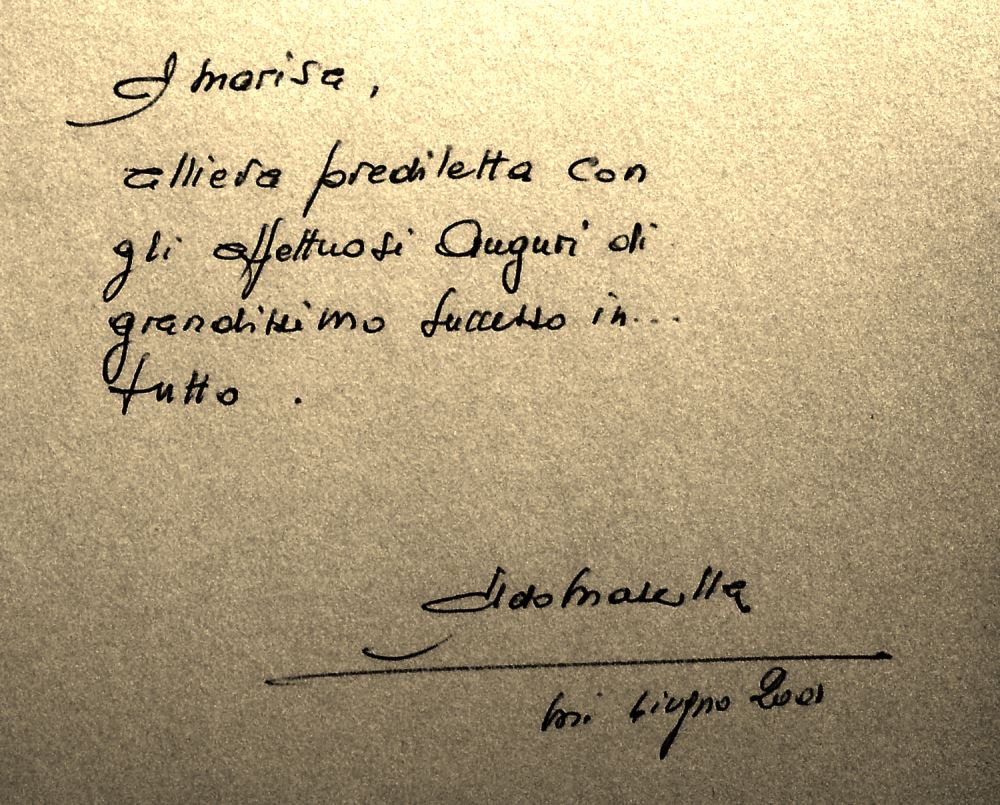 A Marisa,
allieva prediletta con
gli affettuosi Auguri di
grandissimo successo in...
tutto .
Aldo Masella
Mi. Giugno 2001